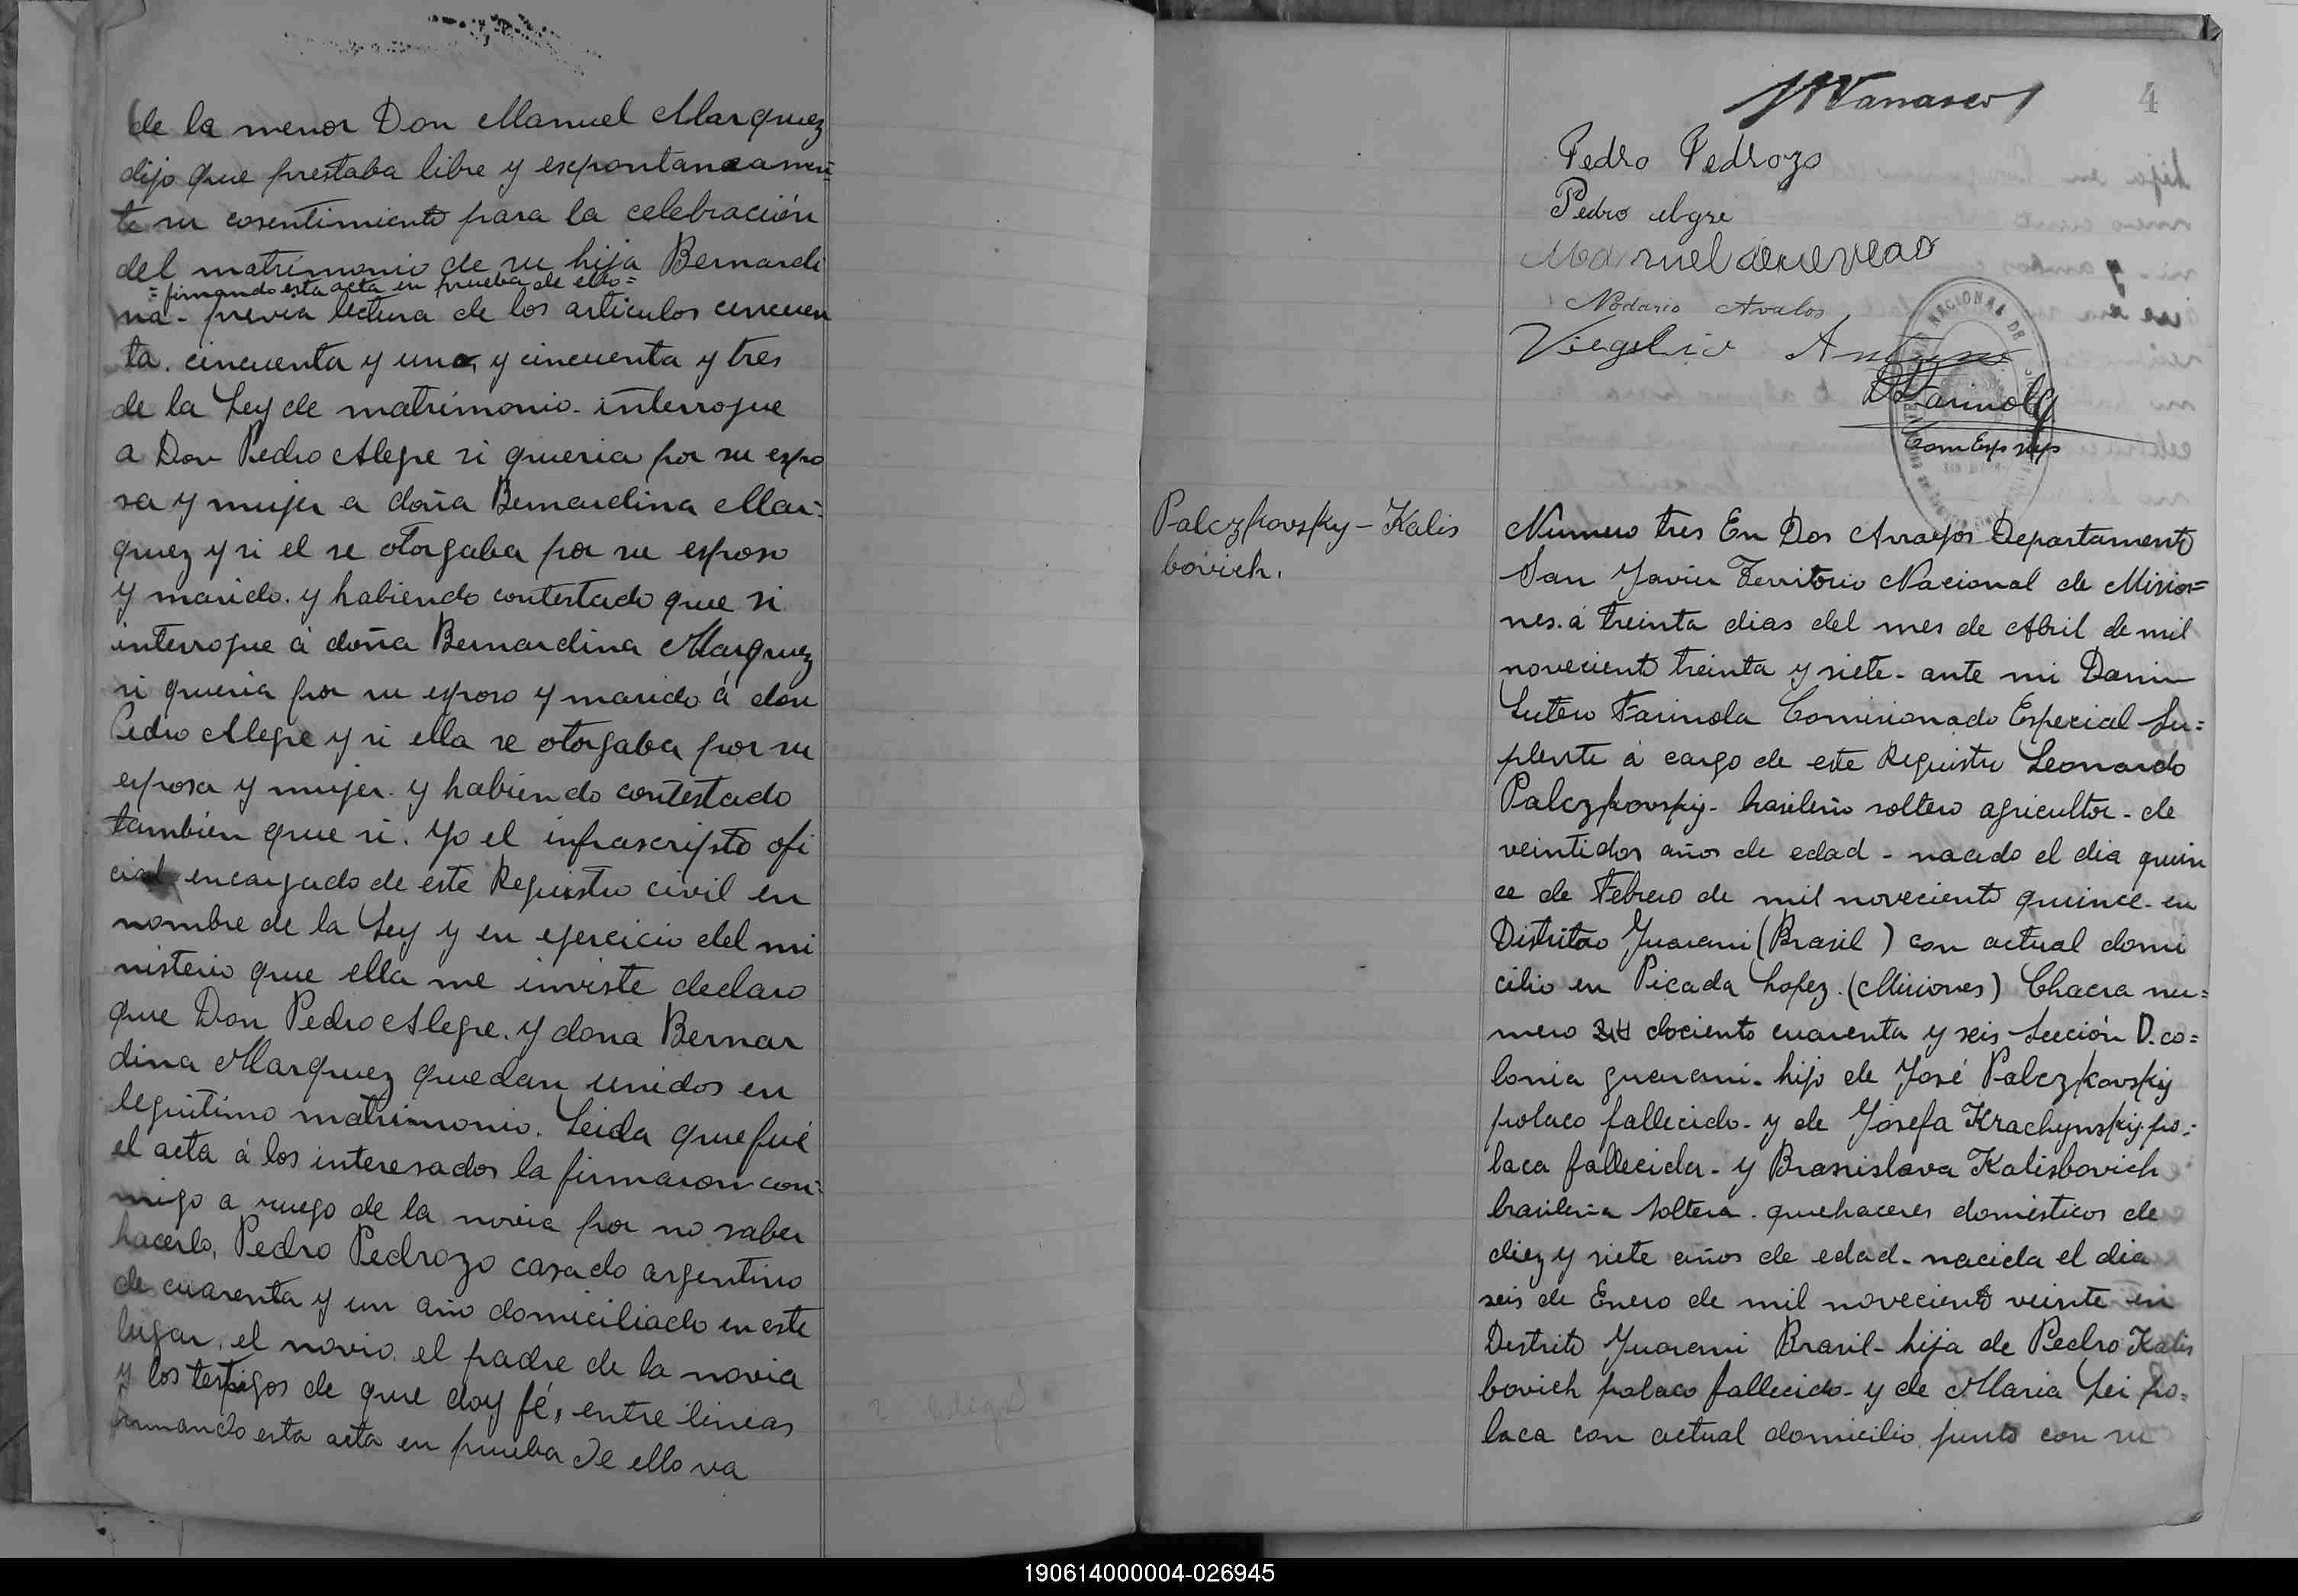 de la menor Don Manuel Marquez
dijo que prestaba libre y expontaneamen=
te su cosentimiento para la celebración
del matrimonio de su hija Bernardi
=firmando esta acta en prueba de ello=
na - previa lectura de los articulos cincuen
ta. cincuenta y uno, y cincuenta y tres
de la Ley de matrimonio - interrogue
a Don Pedro Alegre si queria por su espo
sa y mujer a doña Bernardina Mar=
quez y si el se otorgaba por su esposo
y marido. y habiendo contestado que si
interrogue á doña Bernardina Marquez
si queria por su esposo y marido á don
Pedro Alegre y si ella se otorgaba por su
esposa y mujer. y habiendo contestado
también que si. Yo el infrascripto ofi
cial encargado de este Registro civil en
nombre de la Ley y en ejercicio del mi
nisterio que ella me inviste declaro
que Don Pedro Alegre. y dona Bernar
dina Marquez quedan unidos en
legitimo matrimonio. Leida que fué
el acta á los interesados la firmaron con=
migo a ruego de la novia por no saber
hacerlo, Pedro Pedrozo casado argentino
de cuarenta y un año domiciliado en este
lugar, el novio. el padre de la novia
y los testigos de que doy fé, entre lineas
firmando esta acta en prueba de ello va
4
Pedro Pedrozo
Pedro
Manuel
Avalos
Virgilio
Com Esp Sup
Palczkovsky - Kalis
bovich.
Numero tres En Dos Arroyos Departamento
San Javier Territorio Nacional de Misio=
nes. á treinta dias del mes de Abril de mil
noveciento treinta y siete - ante mi Darin
Lutero Farinola Comisionado Especial Su=
plente á cargo de este Registro Leonardo
Palczkovsky - brasileño soltero agricultor - de
veintidos años de edad - nacido el dia quin
ce de Febrero de mil noveciento quince - en
Distrito Guarani (Brasil) con actual domi
cilio en Picada Lopez. (Misiones) Chacra nu=
mero dociento cuarenta y seis Sección D. co=
lonia guarani - hijo de José Palczkovsky
polaco fallecido - y de Josefa Krachynsky. po=
laca fallecida - y Branislava Kalisbovich
brasileña soltera - quehaceres domésticos de
diez y siete años de edad - nacida el dia
seis de Enero de mil noveciento veinte en
Distrito Guarani Brasil - hija de Pedro Kalis
bovich polaco fallecido - y de Maria Lei po=
laca con actual domicilio junto con su
190614000004-026945